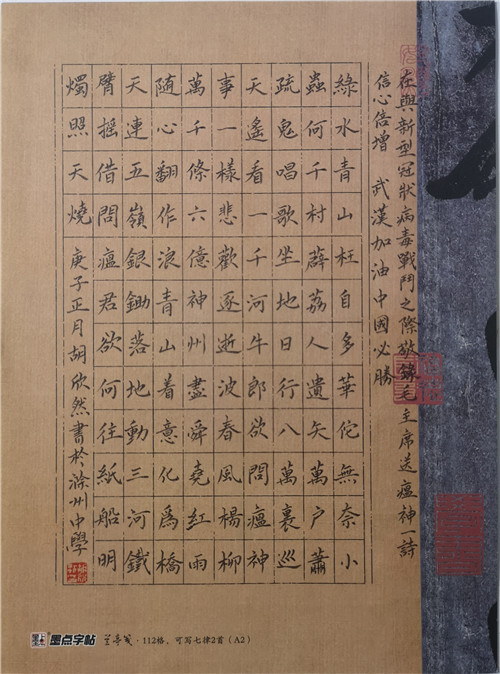 在與新型冠狀病毒戰鬥之際敬錄毛主席送瘟神一詩
信心倍增 武漢加油中國必勝
綠水青山枉自多華佗無奈小
蟲何千村薜荔人遺矢萬戶蕭
疏鬼唱歌坐地日行八萬裏巡
天遙看一千河牛郎欲問瘟神
事一樣悲歡逐逝波春風楊柳
萬千條六億神州盡舜堯紅雨
隨心翻作浪青山着意化爲橋
天連五嶺銀鋤落地動三河鐵
臂摇借問瘟君欲何往紙船明
燭照天燒 庚子正月胡欣然書於滁州中學
墨点字帖 兰亭笺·112格，可写七律2首（A2）